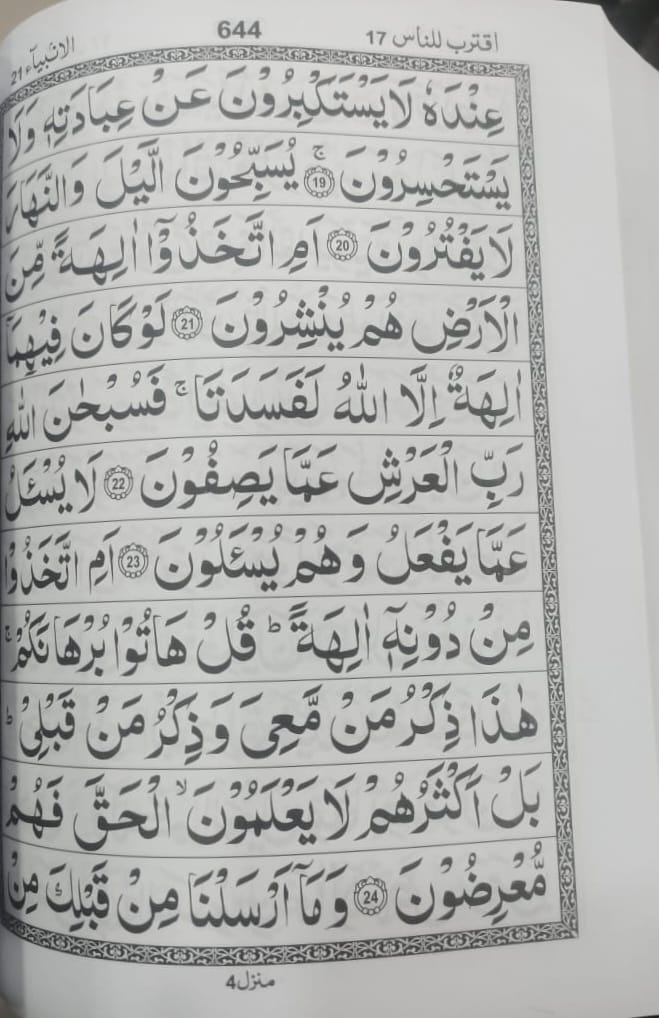 اقترب للناس 17
644
الانبیآء 21
عِنْدَهٗ لَا یَسْتَكْبِرُوْنَ عَنْ عِبَادَتِهٖ وَلَا
یَسْتَحْسِرُوْنَ ۚ 19 یُسَبِّحُوْنَ الَّیْلَ وَالنَّهَارَ
لَا یَفْتُرُوْنَ 20 اَمِ اتَّخَذُوْۤا اٰلِهَةً مِّنَ
الْاَرْضِ هُمْ یُنْشِرُوْنَ 21 لَوْ كَانَ فِیْهِمَاۤ
اٰلِهَةٌ اِلَّا اللّٰهُ لَفَسَدَتَا ۚ فَسُبْحٰنَ اللّٰهِ
رَبِّ الْعَرْشِ عَمَّا یَصِفُوْنَ 22 لَا یُسْـَٔلُ
عَمَّا یَفْعَلُ وَهُمْ یُسْـَٔلُوْنَ 23 اَمِ اتَّخَذُوْا
مِنْ دُوْنِهٖۤ اٰلِهَةً ؕ قُلْ هَاتُوْا بُرْهَانَكُمْ ۚ
هٰذَا ذِكْرُ مَنْ مَّعِیَ وَذِكْرُ مَنْ قَبْلِیْ ؕ
بَلْ اَكْثَرُهُمْ لَا یَعْلَمُوْنَ ۙ الْحَقَّ فَهُمْ
مُّعْرِضُوْنَ 24 وَمَاۤ اَرْسَلْنَا مِنْ قَبْلِكَ مِنْ
منزل 4